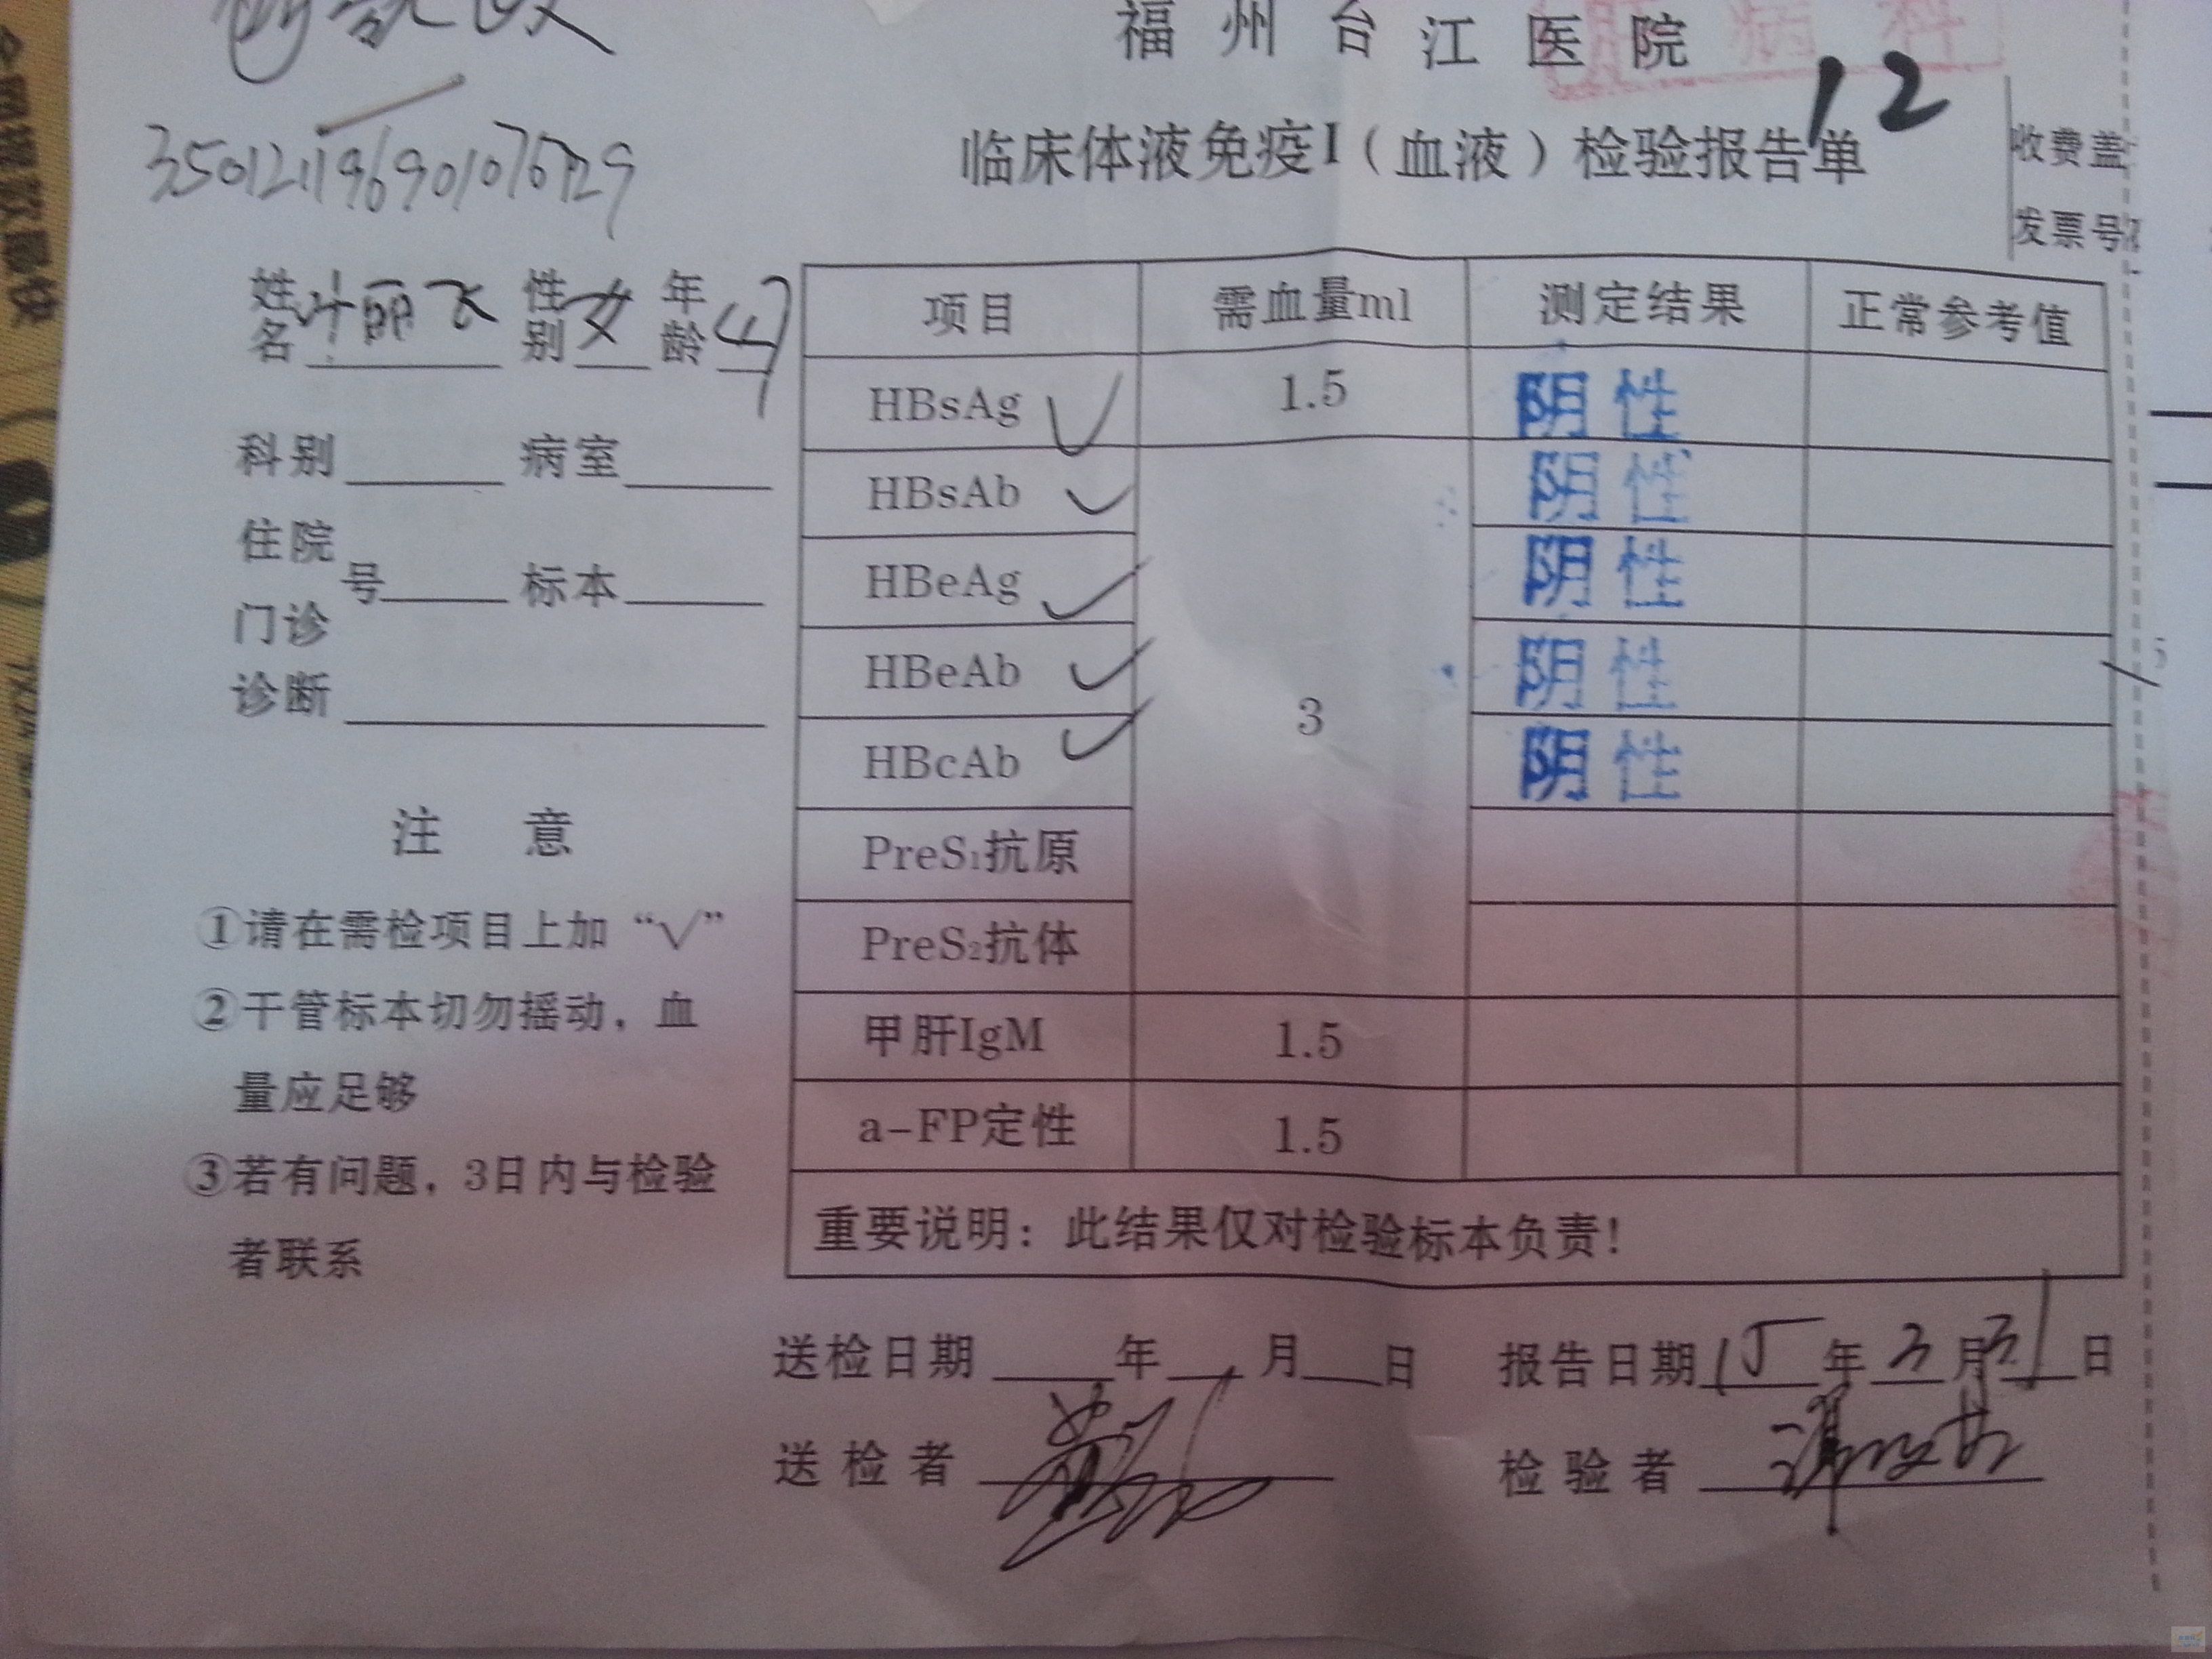 福州台江医院
肝病科
12
临床体液免疫I（血液）检验报告单
收费盖
发票号
姓名 叶丽飞 性别 女 年龄 47
科别 病室
住院
门诊 号 标本
诊断
注 意
①请在需检项目上加“√”
②干管标本切勿摇动，血
量应足够
③若有问题，3日内与检验
者联系
项目 需血量ml 测定结果 正常参考值
HBsAg √ 1.5 阴性
HBsAb √ 阴性
HBeAg √ 阴性
HBeAb √ 3 阴性
HBcAb √ 阴性
PreS₁抗原
PreS₂抗体
甲肝IgM 1.5
a-FP定性 1.5
重要说明：此结果仅对检验标本负责！
送检日期 年 月 日 报告日期 15年3月31日
送检者 检验者